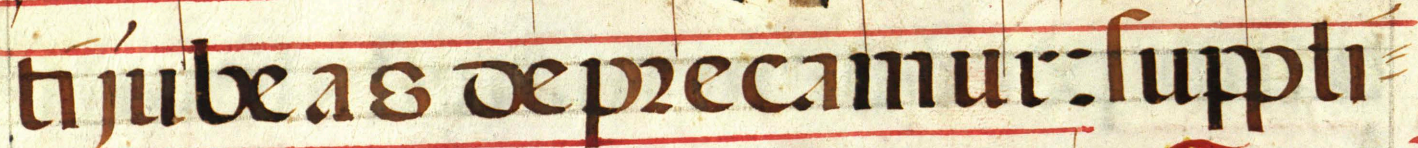 ti jubeas deprecamur: suppli=